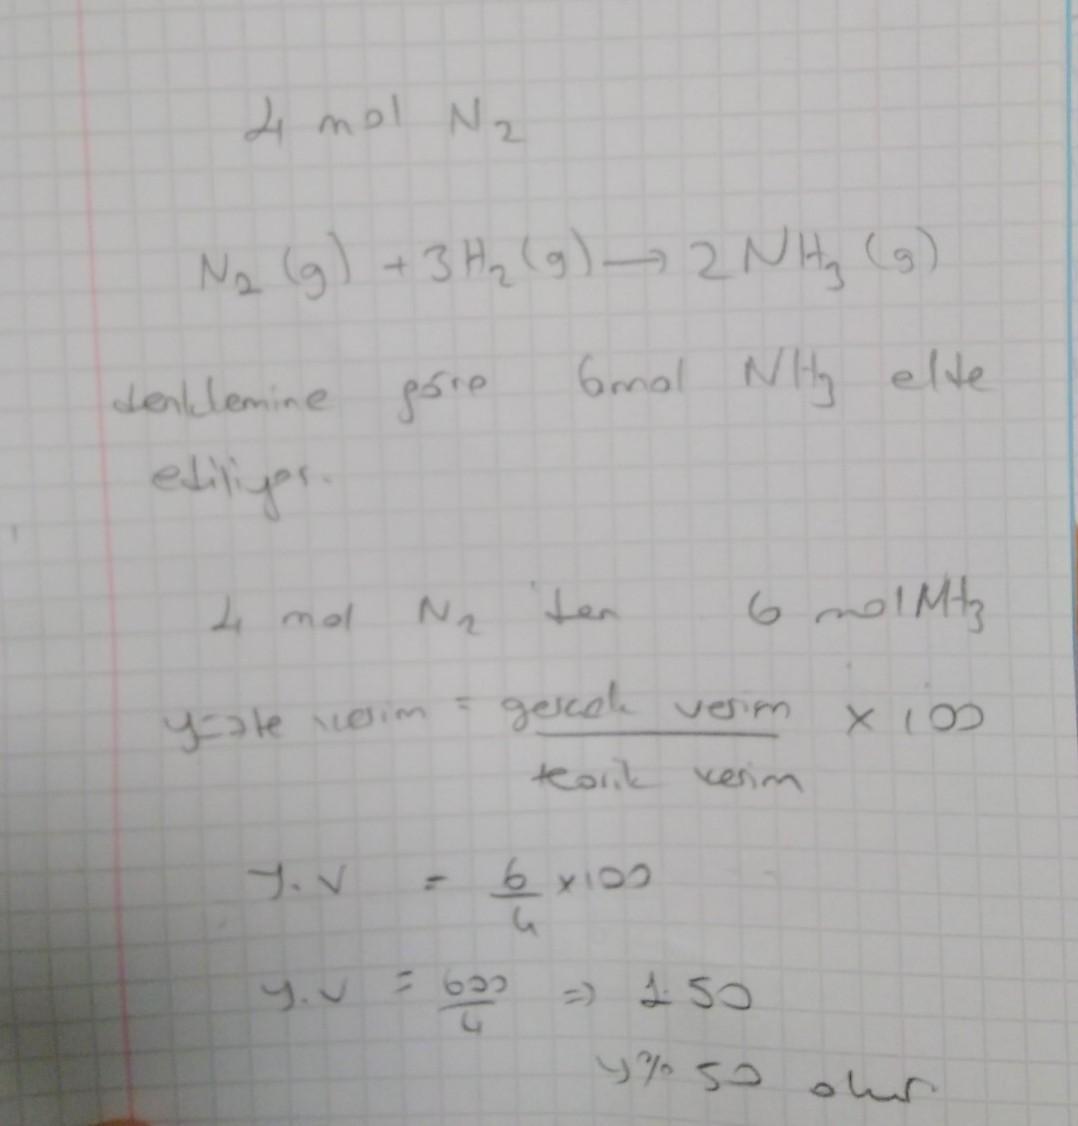 4 mol N₂
N₂ (g) + 3H₂ (g) → 2 NH₃ (g)
denklemine göre 6mol NH₃ elde
ediliyor.
4 mol N₂ den 6 mol NH₃
yüzde verim = gerçek verim / teorik verim × 100
y.v = 6/4 × 100
y.v = 600/4 ⇒ 150
% 50 olur